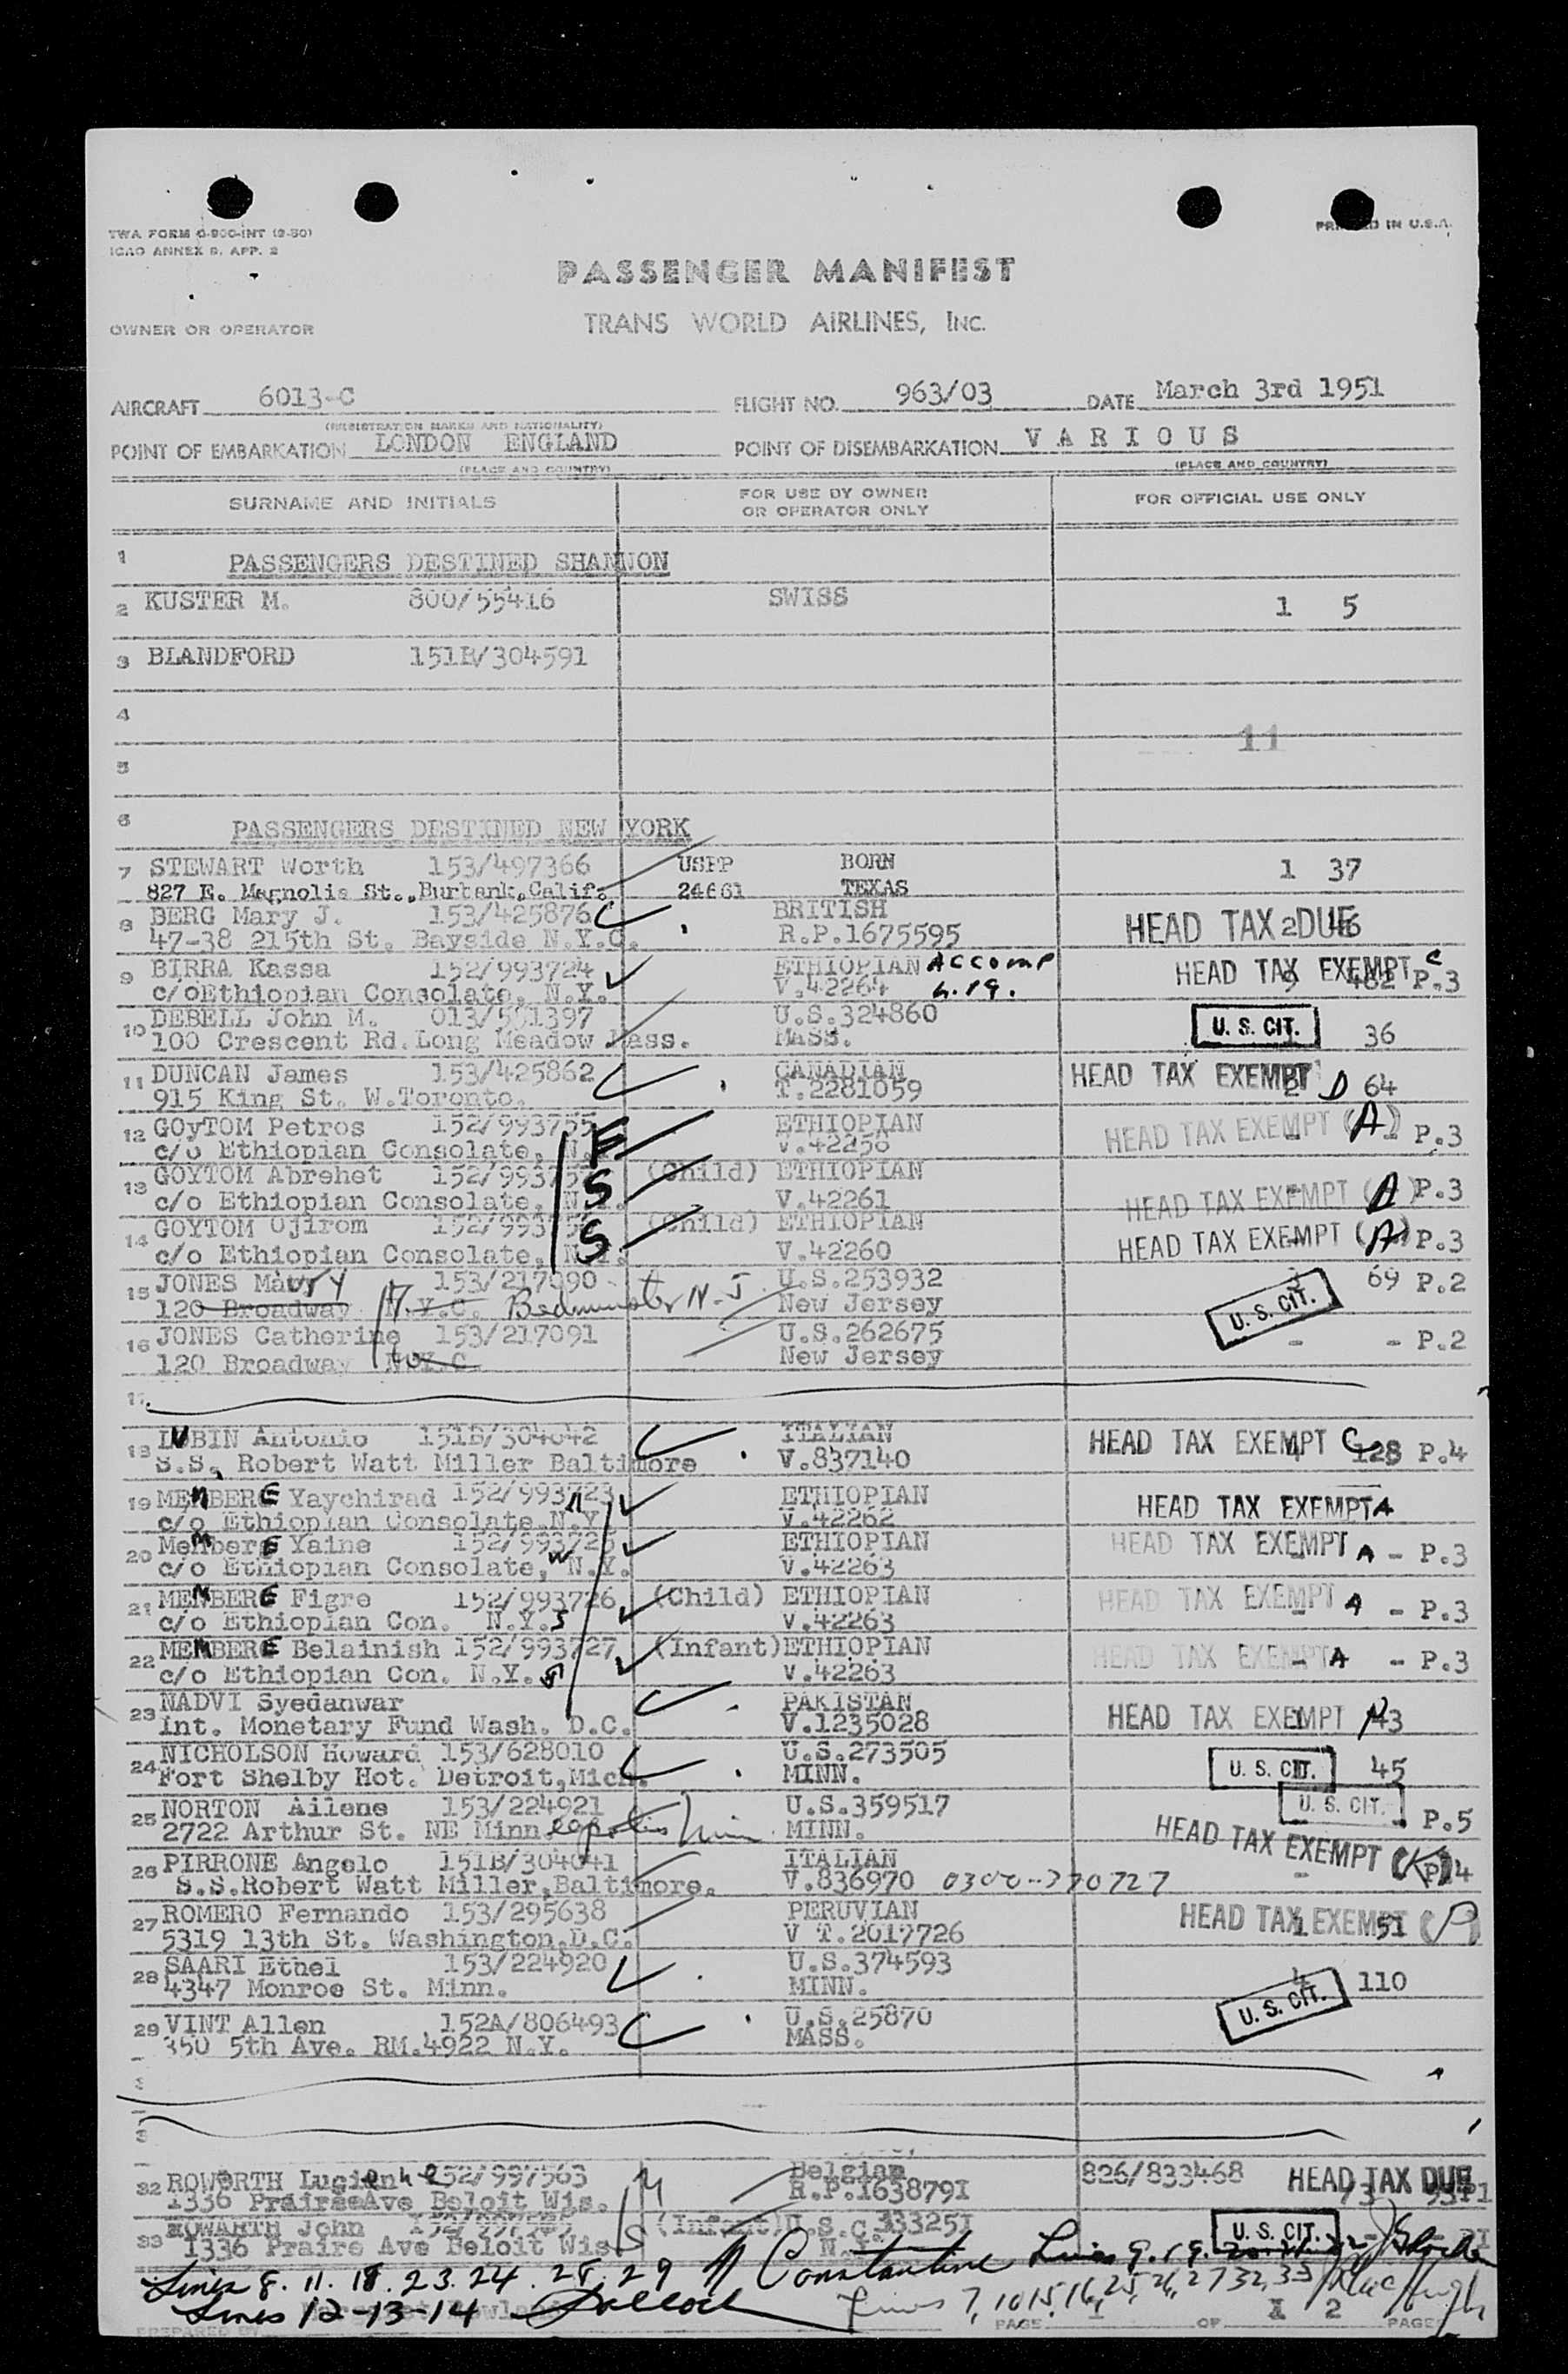 TWA FORM O-900-INT (9-50)
ICAO ANNEX 9, APP. 2
IN U.S.A.
PASSENGER MANIFEST
OWNER OR OPERATOR TRANS WORLD AIRLINES, INC.
AIRCRAFT 6013-C FLIGHT NO. 963/03 DATE March 3rd 1951
(REGISTRATION MARKS AND NATIONALITY)
POINT OF EMBARKATION LONDON ENGLAND POINT OF DISEMBARKATION VARIOUS
(PLACE AND COUNTRY) (PLACE AND COUNTRY)
SURNAME AND INITIALS FOR USE BY OWNER OR OPERATOR ONLY FOR OFFICIAL USE ONLY
1 PASSENGERS DESTINED SHANNON
2 KUSTER M. 800/55416 SWISS 1 5
3 BLANDFORD 151B/304591
4
11
5
6 PASSENGERS DESTINED NEW YORK
7 STEWART Worth 153/497366 USPP BORN 1 37
827 E. Magnolia St., Burbank, Calif. 24661 TEXAS
8 BERG Mary J. 153/425876 BRITISH HEAD TAX DUE 2 46
47-38 215th St. Bayside N.Y.C. R.P.1675595
9 BIRRA Kassa 152/993724 ETHIOPIAN ACCOMP HEAD TAX EXEMPT C
c/oEthiopian Consolate, N.Y. V.42264 L.19. 9 482 P.3
10 DEBELL John M. 013/551397 U.S.324860 U.S. CIT. 36
100 Crescent Rd.Long Meadow Mass. MASS.
11 DUNCAN James 153/425862 CANADIAN HEAD TAX EXEMPT D 64
915 King St. W.Toronto. T.2281059
12 GOyTOM Petros 152/993755 F ETHIOPIAN HEAD TAX EXEMPT (A) P.3
c/o Ethiopian Consolate, V.42258
13 GOYTOM Abrehet S (Child) ETHIOPIAN HEAD TAX EXEMPT (A) P.3
c/o Ethiopian Consolate, V.42261
14 GOYTOM Ojirom S (Child) ETHIOPIAN HEAD TAX EXEMPT (A) P.3
c/o Ethiopian Consolate, V.42260
15 JONES Maury 153/217090 U.S.253932 3 69 P.2
120 Broadway N.Y.C. Bedminster N.J. New Jersey U.S. CIT.
16 JONES Catherine 153/217091 U.S.262675 - - P.2
120 Broadway N.Y.C. New Jersey
17
18 LUBIN Antonio 151B/304042 ITALIAN HEAD TAX EXEMPT C 128 P.4
S.S. Robert Watt Miller Baltimore V.837140
19 MEMBERE Yaychirad 152/993723 ETHIOPIAN HEAD TAX EXEMPT A
c/o Ethiopian Consolate.N.Y. V.42262
20 MemberE Yaine 152/993725 ETHIOPIAN HEAD TAX EXEMPT A - P.3
c/o Ethiopian Consolate, N.Y. V.42263
21 MEMBERE Figre 152/993726 (Child) ETHIOPIAN HEAD TAX EXEMPT A - P.3
c/o Ethiopian Con. N.Y. S V.42263
22 MEMBERE Belainish 152/993727 (Infant)ETHIOPIAN HEAD TAX EXEMPT A - P.3
c/o Ethiopian Con. N.Y. V.42263
23 NADVI Syedanwar PAKISTAN HEAD TAX EXEMPT
Int. Monetary Fund Wash. D.C. V.1235028
24 NICHOLSON Howard 153/628010 U.S.273505 U.S. CIT. 45
Fort Shelby Hot. Detroit,Mich. MINN.
25 NORTON Ailene 153/224921 U.S.359517 U.S. CIT. P.5
2722 Arthur St. NE Minneapolis Minn MINN.
26 PIRRONE Angelo 151B/304041 ITALIAN HEAD TAX EXEMPT (K) P.4
S.S.Robert Watt Miller,Baltimore. V.836970 0300-770727
27 ROMERO Fernando 153/295638 PERUVIAN HEAD TAX EXEMPT (P) 1 51
5319 13th St. Washington,D.C. V T.2017726
28 SAARI Ethel 153/224920 U.S.374593 4 110
4347 Monroe St. Minn. MINN. U.S. CIT.
29 VINT Allen 152A/806493 U.S.25870
350 5th Ave. RM.4922 N.Y. MASS.
32 ROWORTH Lucienne 152/997563 M Belgian 826/833468 HEAD TAX DUE
1336 PrairieAve Beloit Wis. R.P.1638791
33 HOWARTH John S (Infant)U.S.C.333251 U.S. CIT.
1336 Praire Ave Beloit Wis N.Y.
Lines 8. 11. 18. 23. 24. 28. 29 A Constantine Lines 9. 19. 20. 21. 22
Lines 12-13-14 Pollock Lines 7, 10 15, 16, 25, 26, 27 32, 33
PREPARED BY PAGE 1 OF 2 PAGES